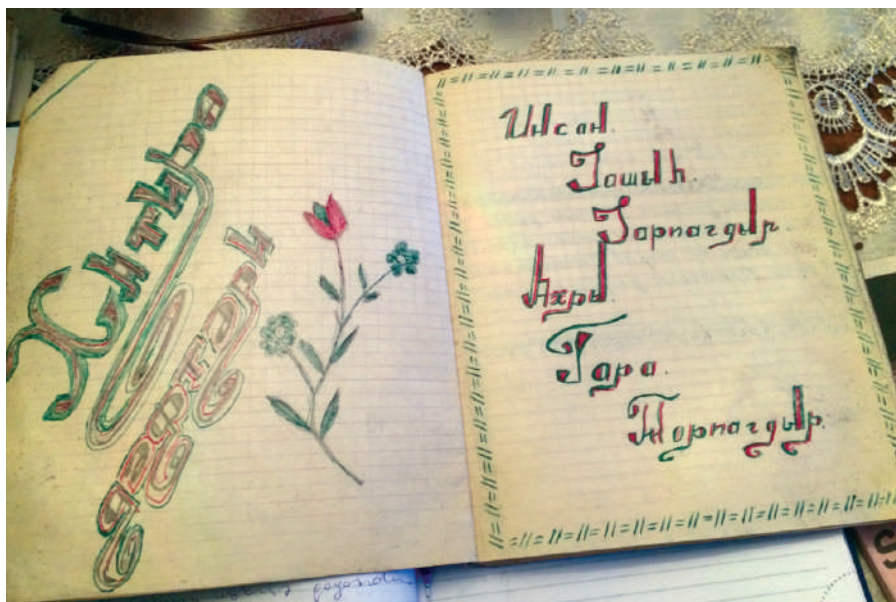 Хатирә
дәфтәри
Инсан.
Јашыл.
Јарпагдыр.
Ахры.
Гара.
Торпагдыр.